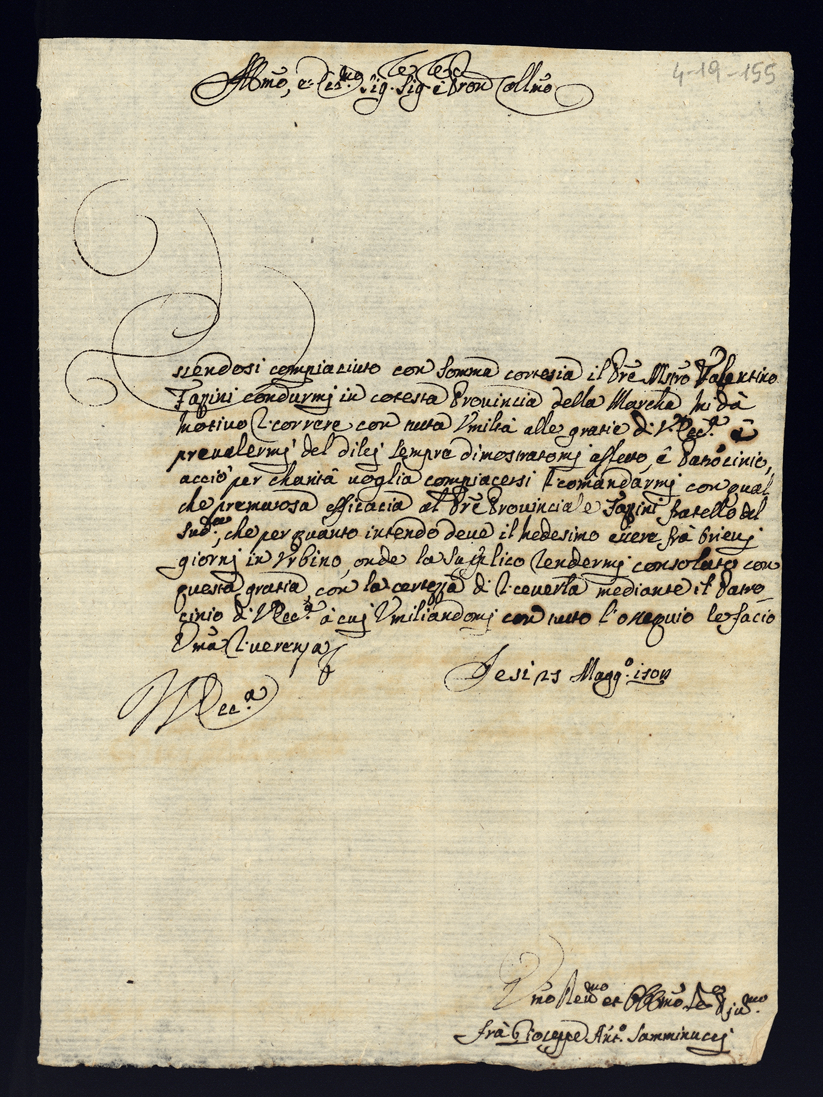 4-19-155
Illmo, e Ecc.mo Sig. Sig. e Pron Collmo
siendosi compiaciuto con somma cortesia il Pre Mstro Valentino
condurmj in cotesta Provincia della Marcha mi dà
motivo ricorrere con tutta Umiltà alle gratie di V. Ecc.a e
prevalermj del dilej sempre dimostratomj affetto, e Patrocinio,
acciò per charità voglia compiacersi ricomandarmj con qual
che premurosa efficacia al Pre Provinciale fratello del
sud.o, che per quanto intendo deve il medesimo essere frà brievj
giornj in Urbino, onde la supplico rendermj consolato con
questa gratia, con la certezza di riceverla mediante il Patro
cinio di V Ecc.a à cuj Umiliandomj con tutto l'ossequio le facio
Uma riverenza
Jesi 25 Magg.o
V Ecc.a
Umo Dev.mo et Obbmo
frà Gioseppe Ant.o Samminuccj